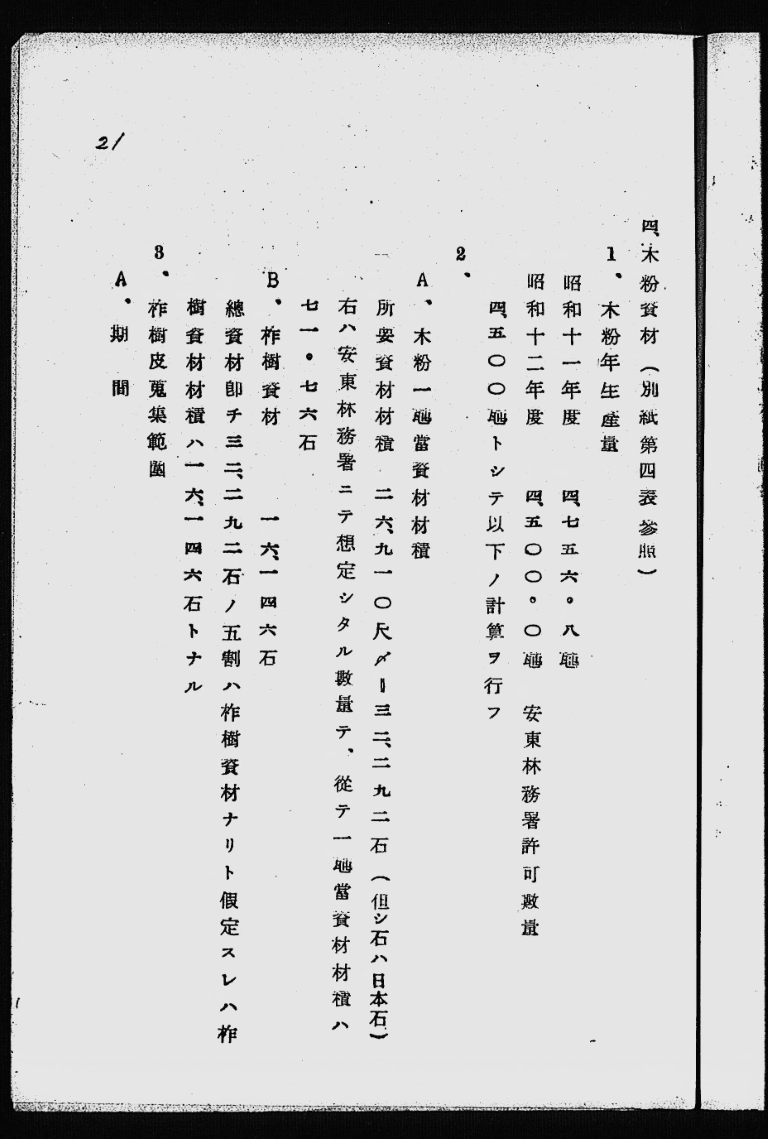 21
四、木粉資材（別紙第四表參照）
1、木粉年生產量
昭和十一年度　四、七五六。八瓲
昭和十二年度　四、五〇〇。〇瓲　安東林務署許可數量
2、
四、五〇〇瓲トシテ以下ノ計算ヲ行フ
A、木粉一瓲當資材材積
所要資材材積　二六、九一〇尺〆ー三二、二九二石（但シ石ハ日本石）
右ハ安東林務署ニテ想定シタル數量テ、從テ一瓲當資材材積ハ
七一。七六石
B、柞樹資材　一六、一四六石
總資材卽チ三二、二九二石ノ五割ハ柞樹資材ナリト假定スレハ柞
樹資材材積ハ一六、一四六石トナル
3、柞樹皮蒐集範圍
A、期間